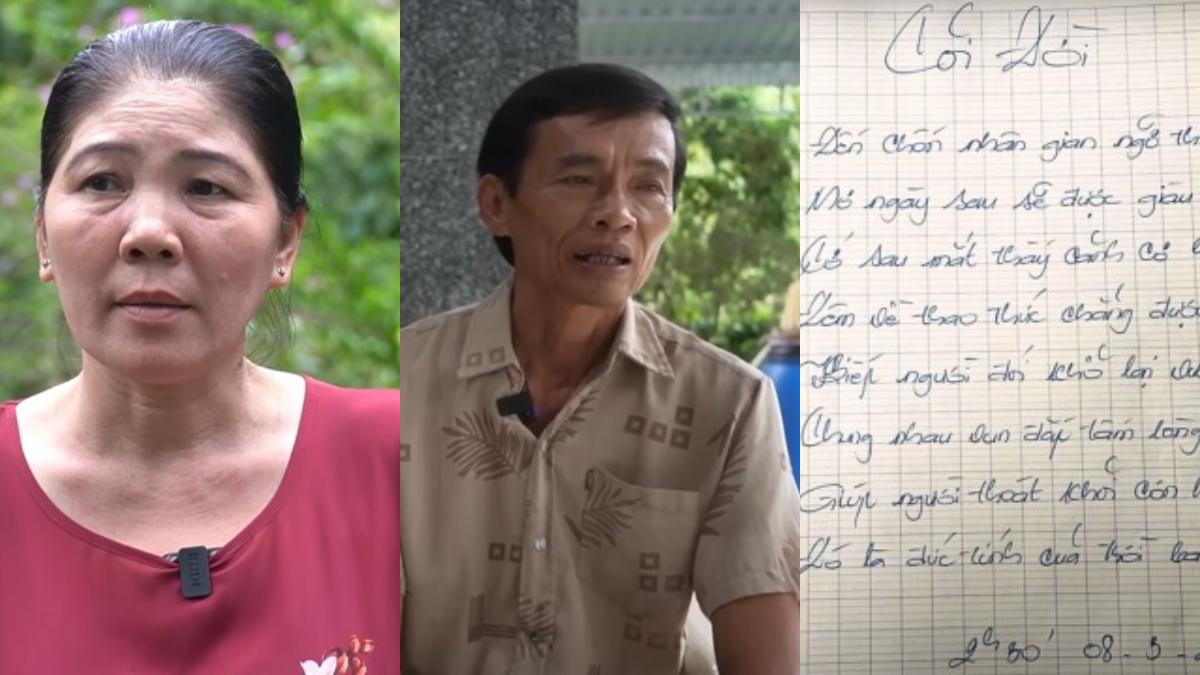 Cõi Đời
Đến chốn nhân gian ngỡ
Mơ ngày sau sẽ được giàu
Cớ sau mắt thấy cảnh cơ
Đêm về thao thức chẳng
Kiếp người đói khổ lại
Chung nhau vun đắp tấm lòng
Giúp người thoát khỏi cơn
Đó là đức tính của
2h30' 08-3-